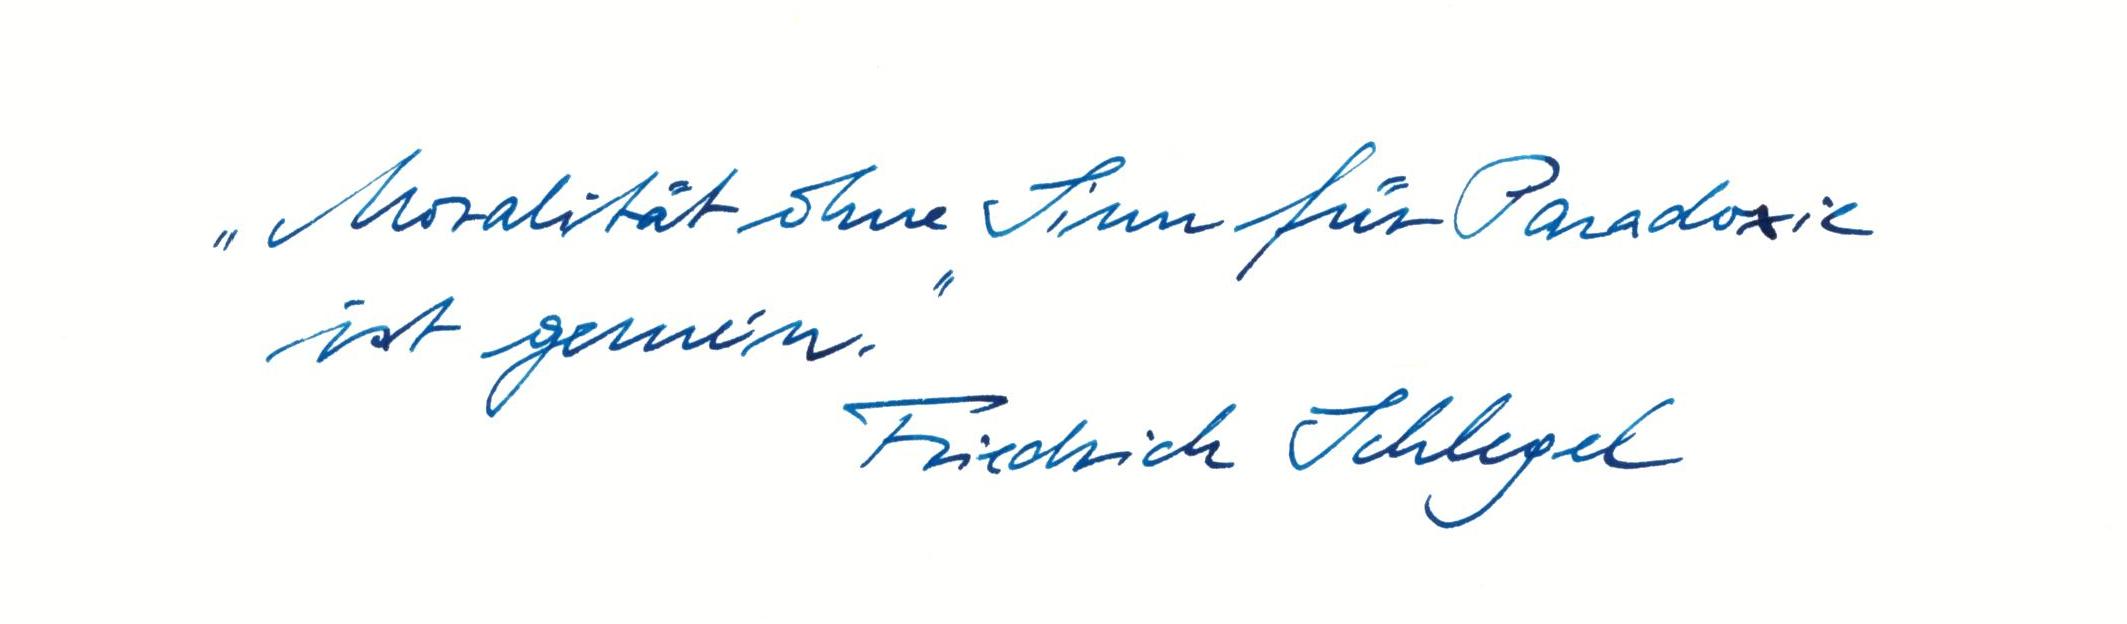 „Moralität ohne Sinn für Paradoxie
ist gemein."
Friedrich Schlegel